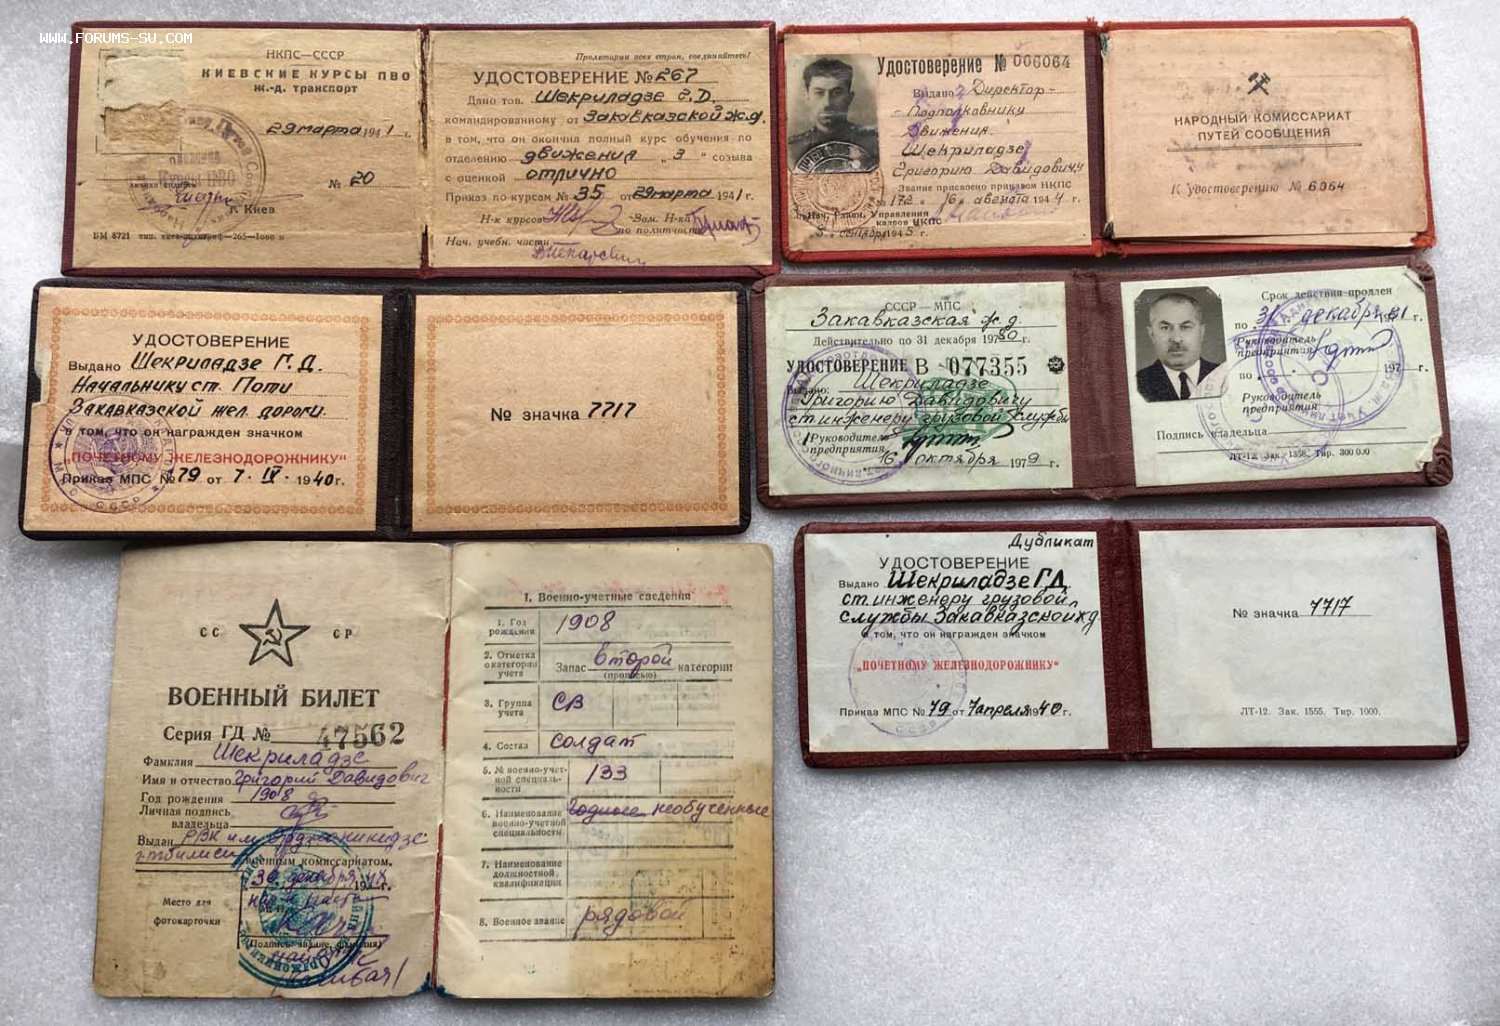 WWW.FORUMS-SU.COM
НКПС—СССР
КИЕВСКИЕ КУРСЫ ПВО
ж.-д. транспорт
29 марта 1941 г.
№ 20
Личная подпись
г. Киев
БМ 8721
Пролетарии всех стран, соединяйтесь!
УДОСТОВЕРЕНИЕ № 267
Дано тов. Шекриладзе Г.Д.
командированному от Закавказской ж.д.
в том, что он окончил полный курс обучения по
отделению движения „3“ созыва
с оценкой отлично
Приказ по курсам № 35 от 29 марта 1941 г.
Н-к курсов
Зам. Н-ка
по политчасти
Нач. учебн. части
Удостоверение № 006064
Выдано Директор-
Подполковнику
Движения.
Шекриладзе
Григорию Давидовичу
Звание присвоено приказом НКПС
№ 172 „16“ августа 1944 г.
Нач. Управления
кадров НКПС
5 сентября 1945 г.
НАРОДНЫЙ КОМИССАРИАТ
ПУТЕЙ СООБЩЕНИЯ
К Удостоверению № 6064
УДОСТОВЕРЕНИЕ
Выдано Шекриладзе Г.Д.
Начальнику ст. Поти
Закавказской жел. дороги.
в том, что он награжден значком
„ПОЧЕТНОМУ ЖЕЛЕЗНОДОРОЖНИКУ“
Приказ МПС № 79 от 7. IV. 1940 г.
№ значка 7717
СССР—МПС
Закавказская ж.д
Действительно по 31 декабря 1980 г.
УДОСТОВЕРЕНИЕ В - 077355
Выдано: Шекриладзе
Григорию Давидовичу
ст.инженеру грузовой службы
Руководитель
предприятия
16 октября 1979 г.
Срок действия продлен
по 31 декабря 1981 г.
Руководитель
предприятия
по „ “ 197 г.
Руководитель
предприятия
Подпись владельца
ЛТ-12 Зак. 1358. Тир. 300 000
СС СР
ВОЕННЫЙ БИЛЕТ
Серия ГД № 47562
Фамилия Шекриладзе
Имя и отчество Григорий Давидович
Год рождения 1908
Личная подпись
владельца
Выдан РВК им. Орджоникидзе
г. Тбилиси военным комиссариатом.
30 декабря
Место для
фотокарточки
(Подпись, звание, фамилия)
I. Военно-учетные сведения
1. Год рождения 1908
2. Отметка о категории учета Запас второй категории
(прописью)
3. Группа учета СВ
4. Состав солдат
5. № военно-учетной специальности 133
6. Наименование военно-учетной специальности необученные
7. Наименование должностной квалификации
8. Военное звание рядовой
Дубликат
УДОСТОВЕРЕНИЕ
Выдано Шекриладзе Г.Д.
ст.инженеру грузовой
службы Закавказской ж.д.
в том, что он награжден значком
„ПОЧЕТНОМУ ЖЕЛЕЗНОДОРОЖНИКУ“
Приказ МПС № 79 от 7 апреля 1940 г.
№ значка 7717
ЛТ-12. Зак. 1555. Тир. 1000.